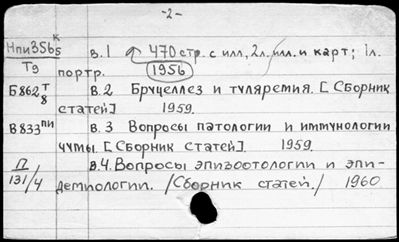 -2-
Нпи356к5 в.1 470 стр. с илл, 2л. илл. и карт; 1л.
Т9 портр. 1956
Б862т8 в.2 Бруцеллез и туляремия. [Сборник
статей] 1959.
В833пи в.3 Вопросы патологии и иммунологии
чумы. [Сборник статей]. 1959.
П131/4 в.4. Вопросы эпизоотологии и эпи-
демиологии. /Сборник статей./ 1960